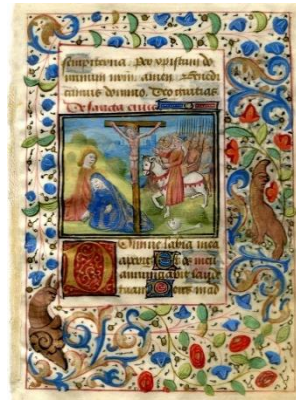 sempiterna. Per xpistum do
minum nrm. amen. Benedi
camus domino. Deo gratias
De sancta cruce
Domine labia mea
aperies Et os meu
annunciabit laude
tuam Deus in ad